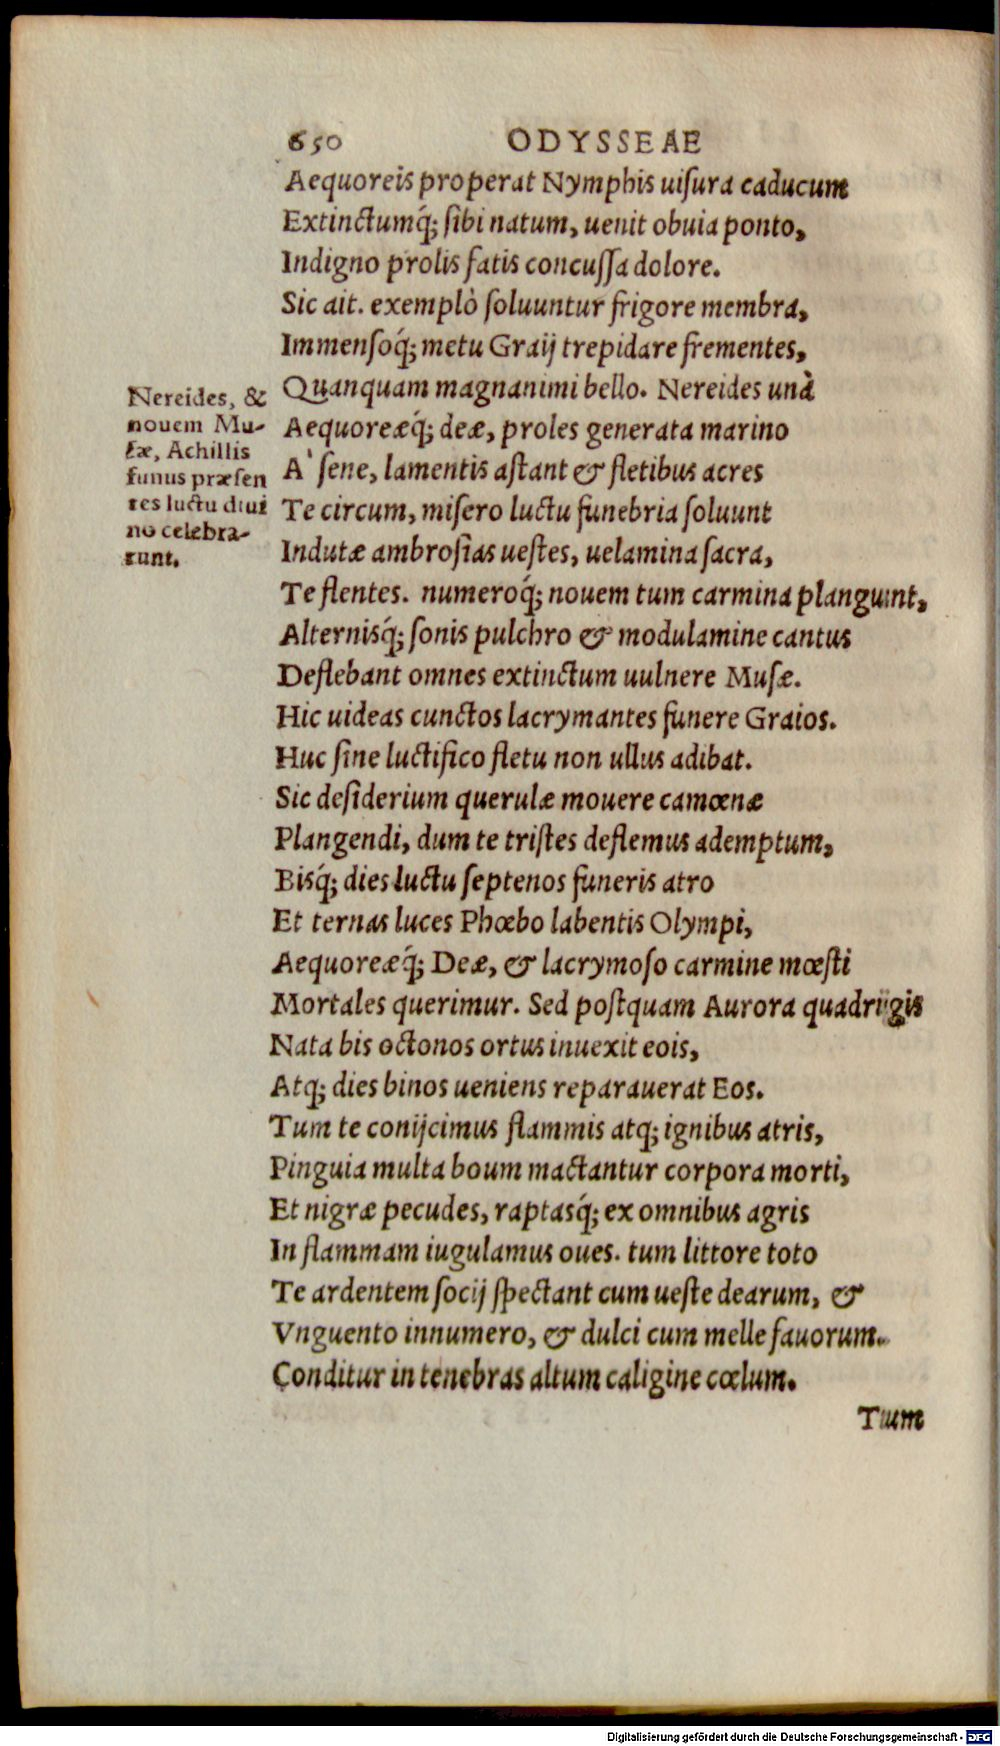 650 ODYSSEAE
Aequoreis properat Nymphis uiſura caducum
Extinctumq́; ſibi natum, uenit obuia ponto,
Indigno prolis fatis concuſſa dolore.
Sic ait. exemplò ſoluuntur frigore membra,
Immenſoq́; metu Graij trepidare frementes,
Quanquam magnanimi bello. Nereides unà
Aequoreæq́; deæ, proles generata marino
A' ſene, lamentis aſtant & fletibus acres
Te circum, miſero luctu funebria ſoluunt
Indutæ ambroſias ueſtes, uelamina ſacra,
Te flentes. numeroq́; nouem tum carmina plangunt,
Alternisq́; ſonis pulchro & modulamine cantus
Deflebant omnes extinctum uulnere Muſæ.
Hic uideas cunctos lacrymantes funere Graios.
Huc ſine luctifico fletu non ullus adibat.
Sic deſiderium querulæ mouere camœnæ
Plangendi, dum te triſtes deflemus ademptum,
Bisq́; dies luctu ſeptenos funeris atro
Et ternas luces Phœbo labentis Olympi,
Aequoreæq́; Deæ, & lacrymoſo carmine mœſti
Mortales querimur. Sed poſtquam Aurora quadrijgis
Nata bis octonos ortus inuexit eois,
Atq; dies binos ueniens reparauerat Eos.
Tum te conijcimus flammis atq; ignibus atris,
Pinguia multa boum mactantur corpora morti,
Et nigræ pecudes, raptasq́; ex omnibus agris
In flammam iugulamus oues. tum littore toto
Te ardentem ſocij ſpectant cum ueſte dearum, &
Vnguento innumero, & dulci cum melle fauorum.
Conditur in tenebras altum caligine cœlum.
Tum
Nereides, &
nouem Mu-
ſæ, Achillis
funus præſen
tes luctu diui
no celebra-
runt.
Digitalisierung gefördert durch die Deutsche Forschungsgemeinschaft - DFG